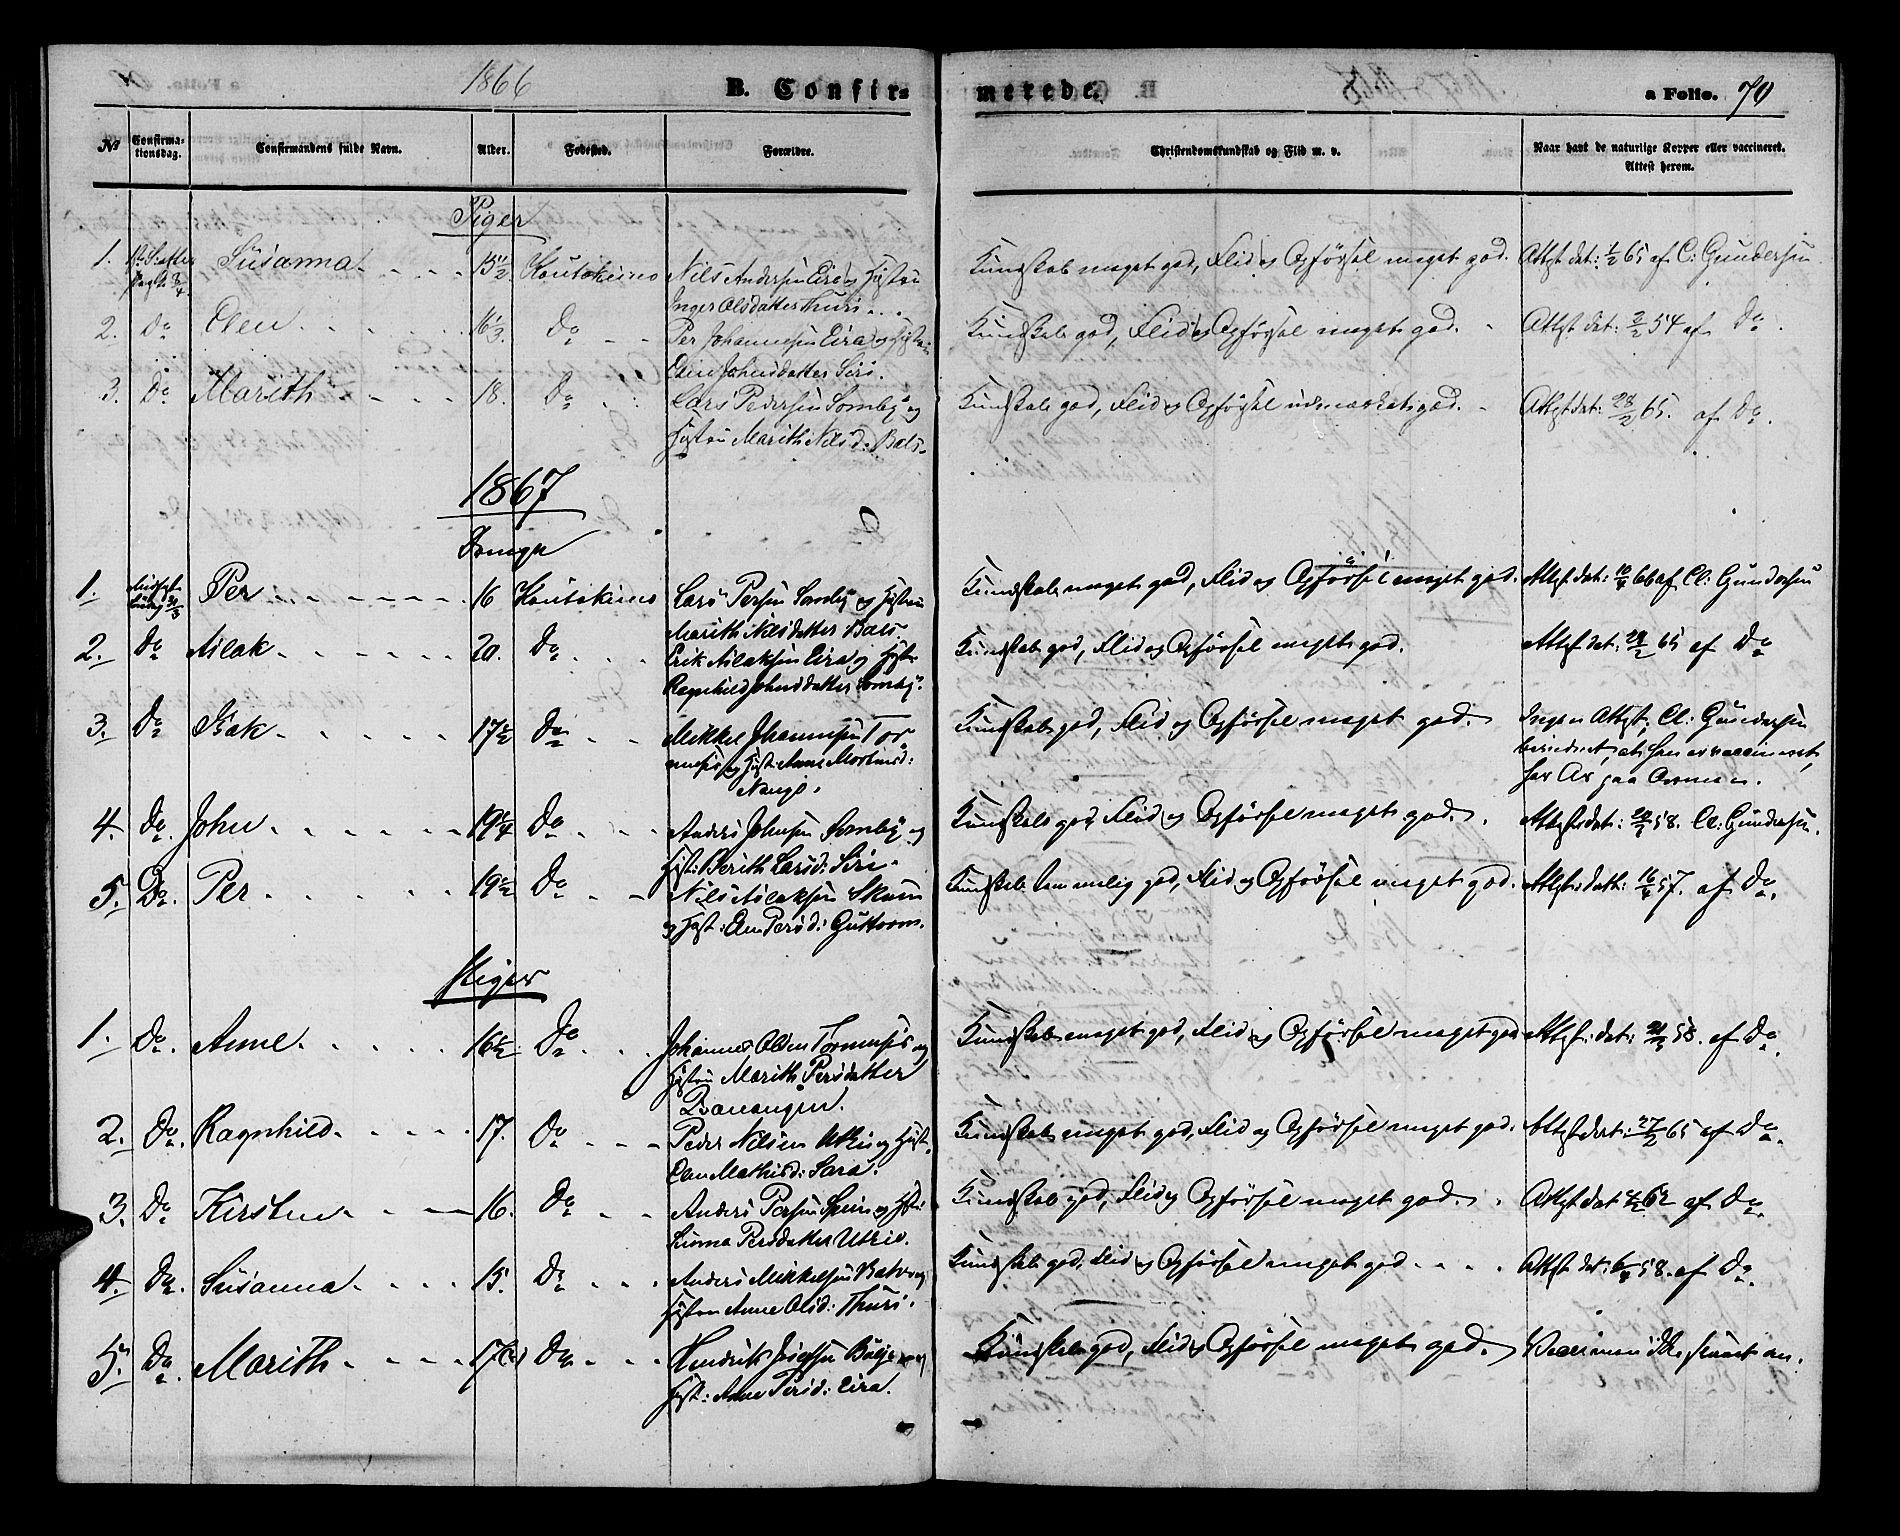 1866 B. Confir=
merede. a Folio. 70
No Confirma-tionsdag. Confirmandens fulde Navn. Alder. Fødested. Forældre. Christendomskundskab og Flid m. v. Naar havt de naturlige Kopper eller vaccineret. Attest herom.
Piger
1. Susanna 15 1/2 Koutokeino Nils Andersen Eira og Hustru Kundskab meget god, Flid og Opførsel meget god. Attest dat: 1/2 65 af C: Gundersen
Inger Olsdatter Thuri
2. Do Elen 16 1/3 Do Per Johannesen Eira og Kundskab god, Flid og Opførsel meget god. Attest dat: 54 af Do.
Elen Johnsdatter Siri.
3. Do Marith 18. Do Lars Pedersen Somby og Kundskab god, Flid og Opførsel udmærket god. Attest dat: 28/2 65. af Do.
Hustru Marith Nilsd: Bals
1867
Drenge
1. Per 16 Koutokeino Lars Persen Somby og Hustru Kundskab meget god, Flid og Opførsel meget god. Attest dat: 66 af Cl: Gundersen
Marith Nilsdatter Bals
2. Do Ailak 20. Do Erik Ailaksen Eira og Hustr Kundskab god, Flid og Opførsel meget god. Attest dat: 65 af Do
Ragnhild Johnsdatter Somby.
3. Do Isak 17 1/2 Do Mikkel Johannesen Tor- Kundskab god, Flid og Opførsel meget god. Ingen Attest, Cl: Gundersen
mensis og Hust: Anne Mortensd: bevidnet, at han er vaccineret,
Nango. har Ar paa Armen.
4. Do. John 19 1/4 Do Anders Johnsen Somby og Kundskab god, Flid og Opførsel meget god. Attest dat: 58. Cl: Gundersen.
Hust: Berith Larsd: Siri
5. Do. Per 19 1/2 Do Nils Ailaksen Skum Kundskab temmelig god, Flid og Opførsel meget god. Attest dat: 57. af Do.
og Hust: Elen Persd: Guttorm.
Piger
1. Do. Anne 16 1/2 Do Johannes Olsen Tormensis og Kundskab meget god, Flid og Opførsel meget god Attest: dat: 58. af Do.
Hustru Marith Persdatter
2. Do. Ragnhild 17. Do Peder Nilsen Utsi og Hust. Kundskab meget god, Flid og Opførsel meget god. Attest dat: 27/2 65 af Do.
Elen Mathisd: Sara.
3. Do Kirsten 16. Do Anders Persen og Hust: Kundskab god, Flid og Opførsel meget god. Attest dat 62 af Do.
Persdatter Utsi.
4. Do. Susanna 15. Do Anders Mikkelsen og Kundskab god, Flid og Opførsel meget god Attest dat: 58. af Do.
Hustru Anne Olsd: Thuri.
5. Do. Marith 17 Do. Hendrik Josefsen og Kundskab god, Flid og Opførsel meget god.
Hust: Anne Persd: Eira.